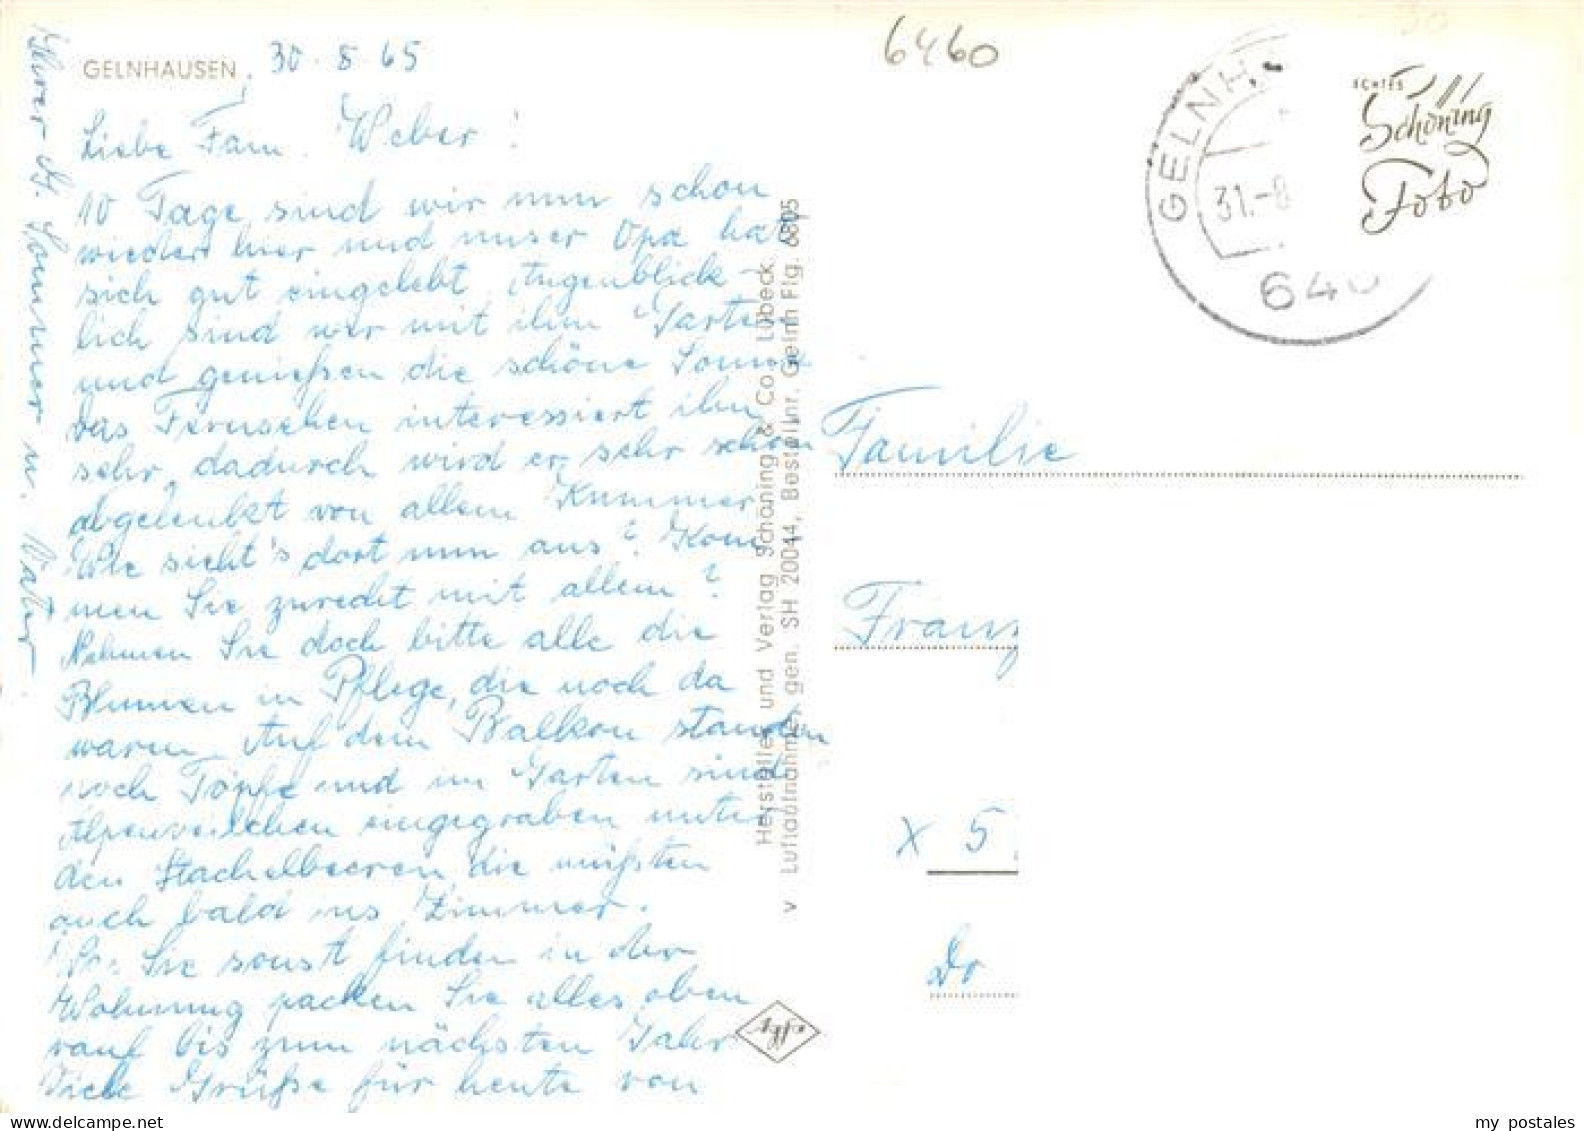 GELNHAUSEN, 30.8.65
Liebe Fam. Weber!
10 Tage sind wir nun schon
wieder hier und unser Opa hat
sich gut eingelebt Augenblick-
lich sind wir mit ihm Garten
und genießen die schöne Sonne
Das Fernsehen interessiert ihn
sehr, dadurch wird er sehr schön
abgelenkt von allem Kummer
Wie sieht's dort nun aus? Kom
men Sie zurecht mit allem?
Nehmen Sie doch bitte alle die
Blumen in Pflege, die noch da
waren. Auf dem Balkon standen
noch Töpfe und im Garten sind
Alpenveilchen eingegraben unter
den Stachelbeeren, die müßten
auch bald ins Zimmer.
Sie sonst finden in der
Wohnung packen Sie alles oben
rauf bis zum nächsten Jahr
Viele Grüße für heute von
Ihrer Sommer u. Vater.
Hersteller und Verlag Schöning & Co., Lübeck
v Luftaufnahme, gen. SH 20044, Bestellnr. Gelnh Flg. 6805
6460
GELNH
31.-8
646
ECHTES
Schöning
Foto
Familie
Franz
x 5
Dr
my postales